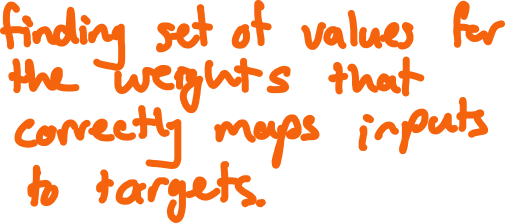 finding set of values for
the weights that
correctly maps inputs
to targets.